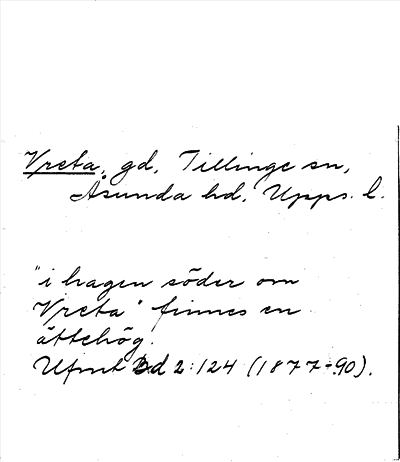 Vreta, gd, Tillinge sn,
Åsunda hd, Upps. l.
"i hagen söder om
Vreta" finnes en
ättehög.
Ufmt Bd 2:124 (1877-90).